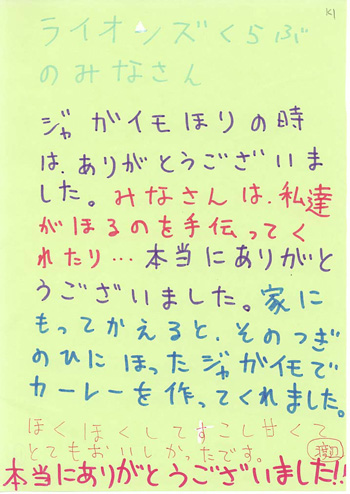 K1
ライオンズくらぶ
のみなさん
ジャガイモほりの時
は、ありがとうございま
した。みなさんは、私達
がほるのを手伝ってく
れたり…本当にありがと
うございました。家に
もってかえると、そのつぎ
のひにほったジャガイモで
カーレーを作ってくれました。
ほくほくしてすこし甘くて
とてもおいしかったです。
本当にありがとうございました!!